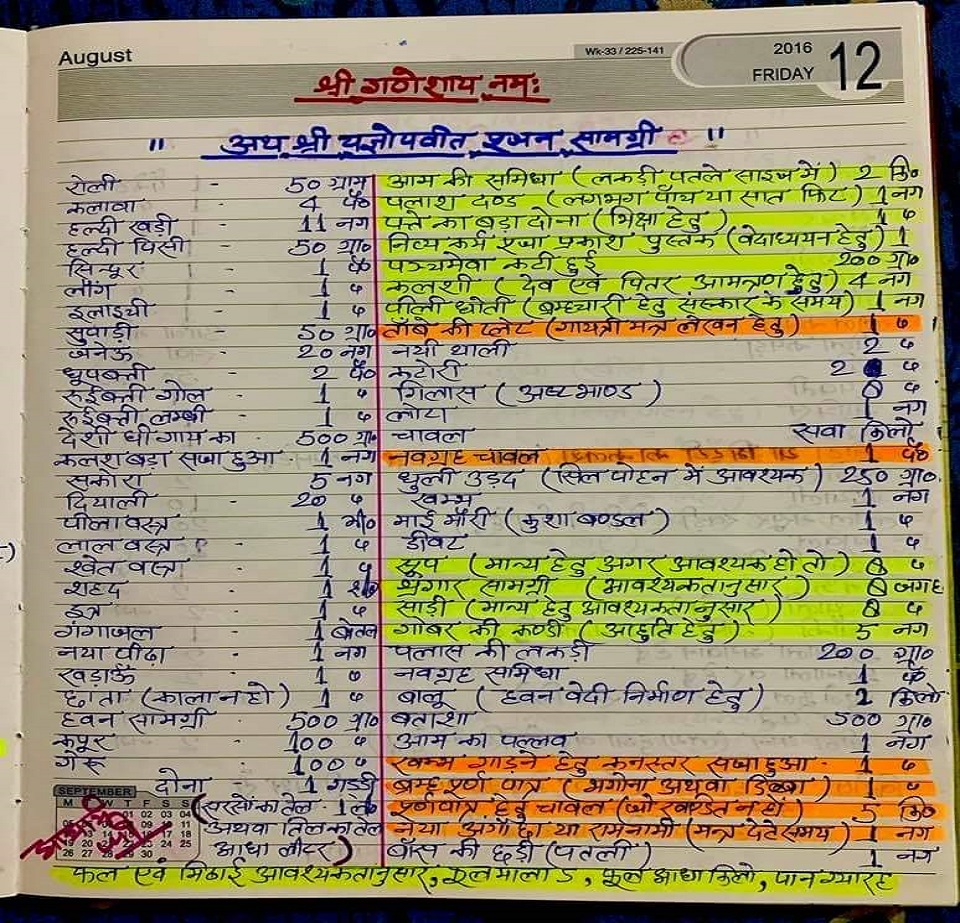 August
Wk-33 / 225-141
2016
FRIDAY
12
श्री गणेशाय नमः
" अथ श्री यज्ञोपवीत पूजन सामग्री "
रोली - 50 ग्राम
कलावा - 4 पै०
हल्दी खड़ी - 11 नग
हल्दी पिसी - 50 ग्रा०
सिन्दूर - 1 पै०
लौंग - 1 "
इलाइची - 1 "
सुपाड़ी - 50 ग्रा०
जनेऊ - 20 नग
धूपबत्ती - 2 पै०
रूईबत्ती गोल - 1 "
रूईबत्ती लम्बी - 1 "
देशी घी गाय का - 500 ग्रा०
कलश बड़ा सजा हुआ - 1 नग
सकोरा - 5 नग
दियाली - 20 "
पीला वस्त्र - 1 मी०
लाल वस्त्र - 1 "
श्वेत वस्त्र - 1 "
शहद - 1 शी०
इत्र - 1 "
गंगाजल - 1 बोतल
नया पीढ़ा - 1 नग
खड़ाऊँ - 1 "
छाता (काला न हो) 1 "
हवन सामग्री - 500 ग्रा०
कपूर - 100 "
गेरू - 100 "
दोना - 1 गड्डी
(सरसों का तेल - 1 ली०
अथवा तिल का तेल
आधा लीटर)
आम की समिधा (लकड़ी पतले साइज में) 2 कि०
पलाश दण्ड (लगभग पाँच या सात फिट) 1 नग
पत्ते का बड़ा दोना (भिक्षा हेतु) 1 "
नित्य कर्म पूजा प्रकाश पुस्तक (वेदाध्ययन हेतु) 1
पञ्चमेवा कटी हुई 200 ग्रा०
कलशी (देव एवं पितर आमन्त्रण हेतु) 4 नग
पीली धोती (ब्रम्हचारी हेतु संस्कार के समय) 1 नग
ताँबे की प्लेट (गायत्री मन्त्र लेखन हेतु) 1 "
नयी थाली 2 "
कटोरी 2 "
गिलास (अष्टभाण्ड) 8 "
लोटा 1 नग
चावल सवा किलो
नवग्रह चावल 1 पै०
धुली उड़द (सिल पोहन में आवश्यक) 250 ग्रा०
खम्भ 1 नग
माई मौरी (कुशा बण्डल) 1 "
डीवट 1 "
सूप (मान्य हेतु अगर आवश्यक हो तो) "
श्रंगार सामग्री (आवश्यकतानुसार) जगह
साड़ी (मान्य हेतु आवश्यकतानुसार) "
गोबर की कण्डी (आहुति हेतु) 5 नग
पलास की लकड़ी 200 ग्रा०
नवग्रह समिधा 1 पै०
बालू (हवन वेदी निर्माण हेतु) 2 किलो
बताशा 500 ग्रा०
आम का पल्लव 1 नग
खम्भ गाड़ने हेतु कनस्तर सजा हुआ - 1 "
ब्रम्ह पूर्ण पात्र (भगोना अथवा डिब्बा) 1 "
पूर्णपात्र हेतु चावल (जो खण्डित न हों) 5 कि०
नया अंगोछा या रामनामी (मन्त्र देते समय) 1 नग
बाँस की छड़ी (पतली) 1 नग
SEPTEMBER
M T W T F S S
फल एवं मिठाई आवश्यकतानुसार, फूलमाला 5, फूल आधा किलो, पान ग्यारह